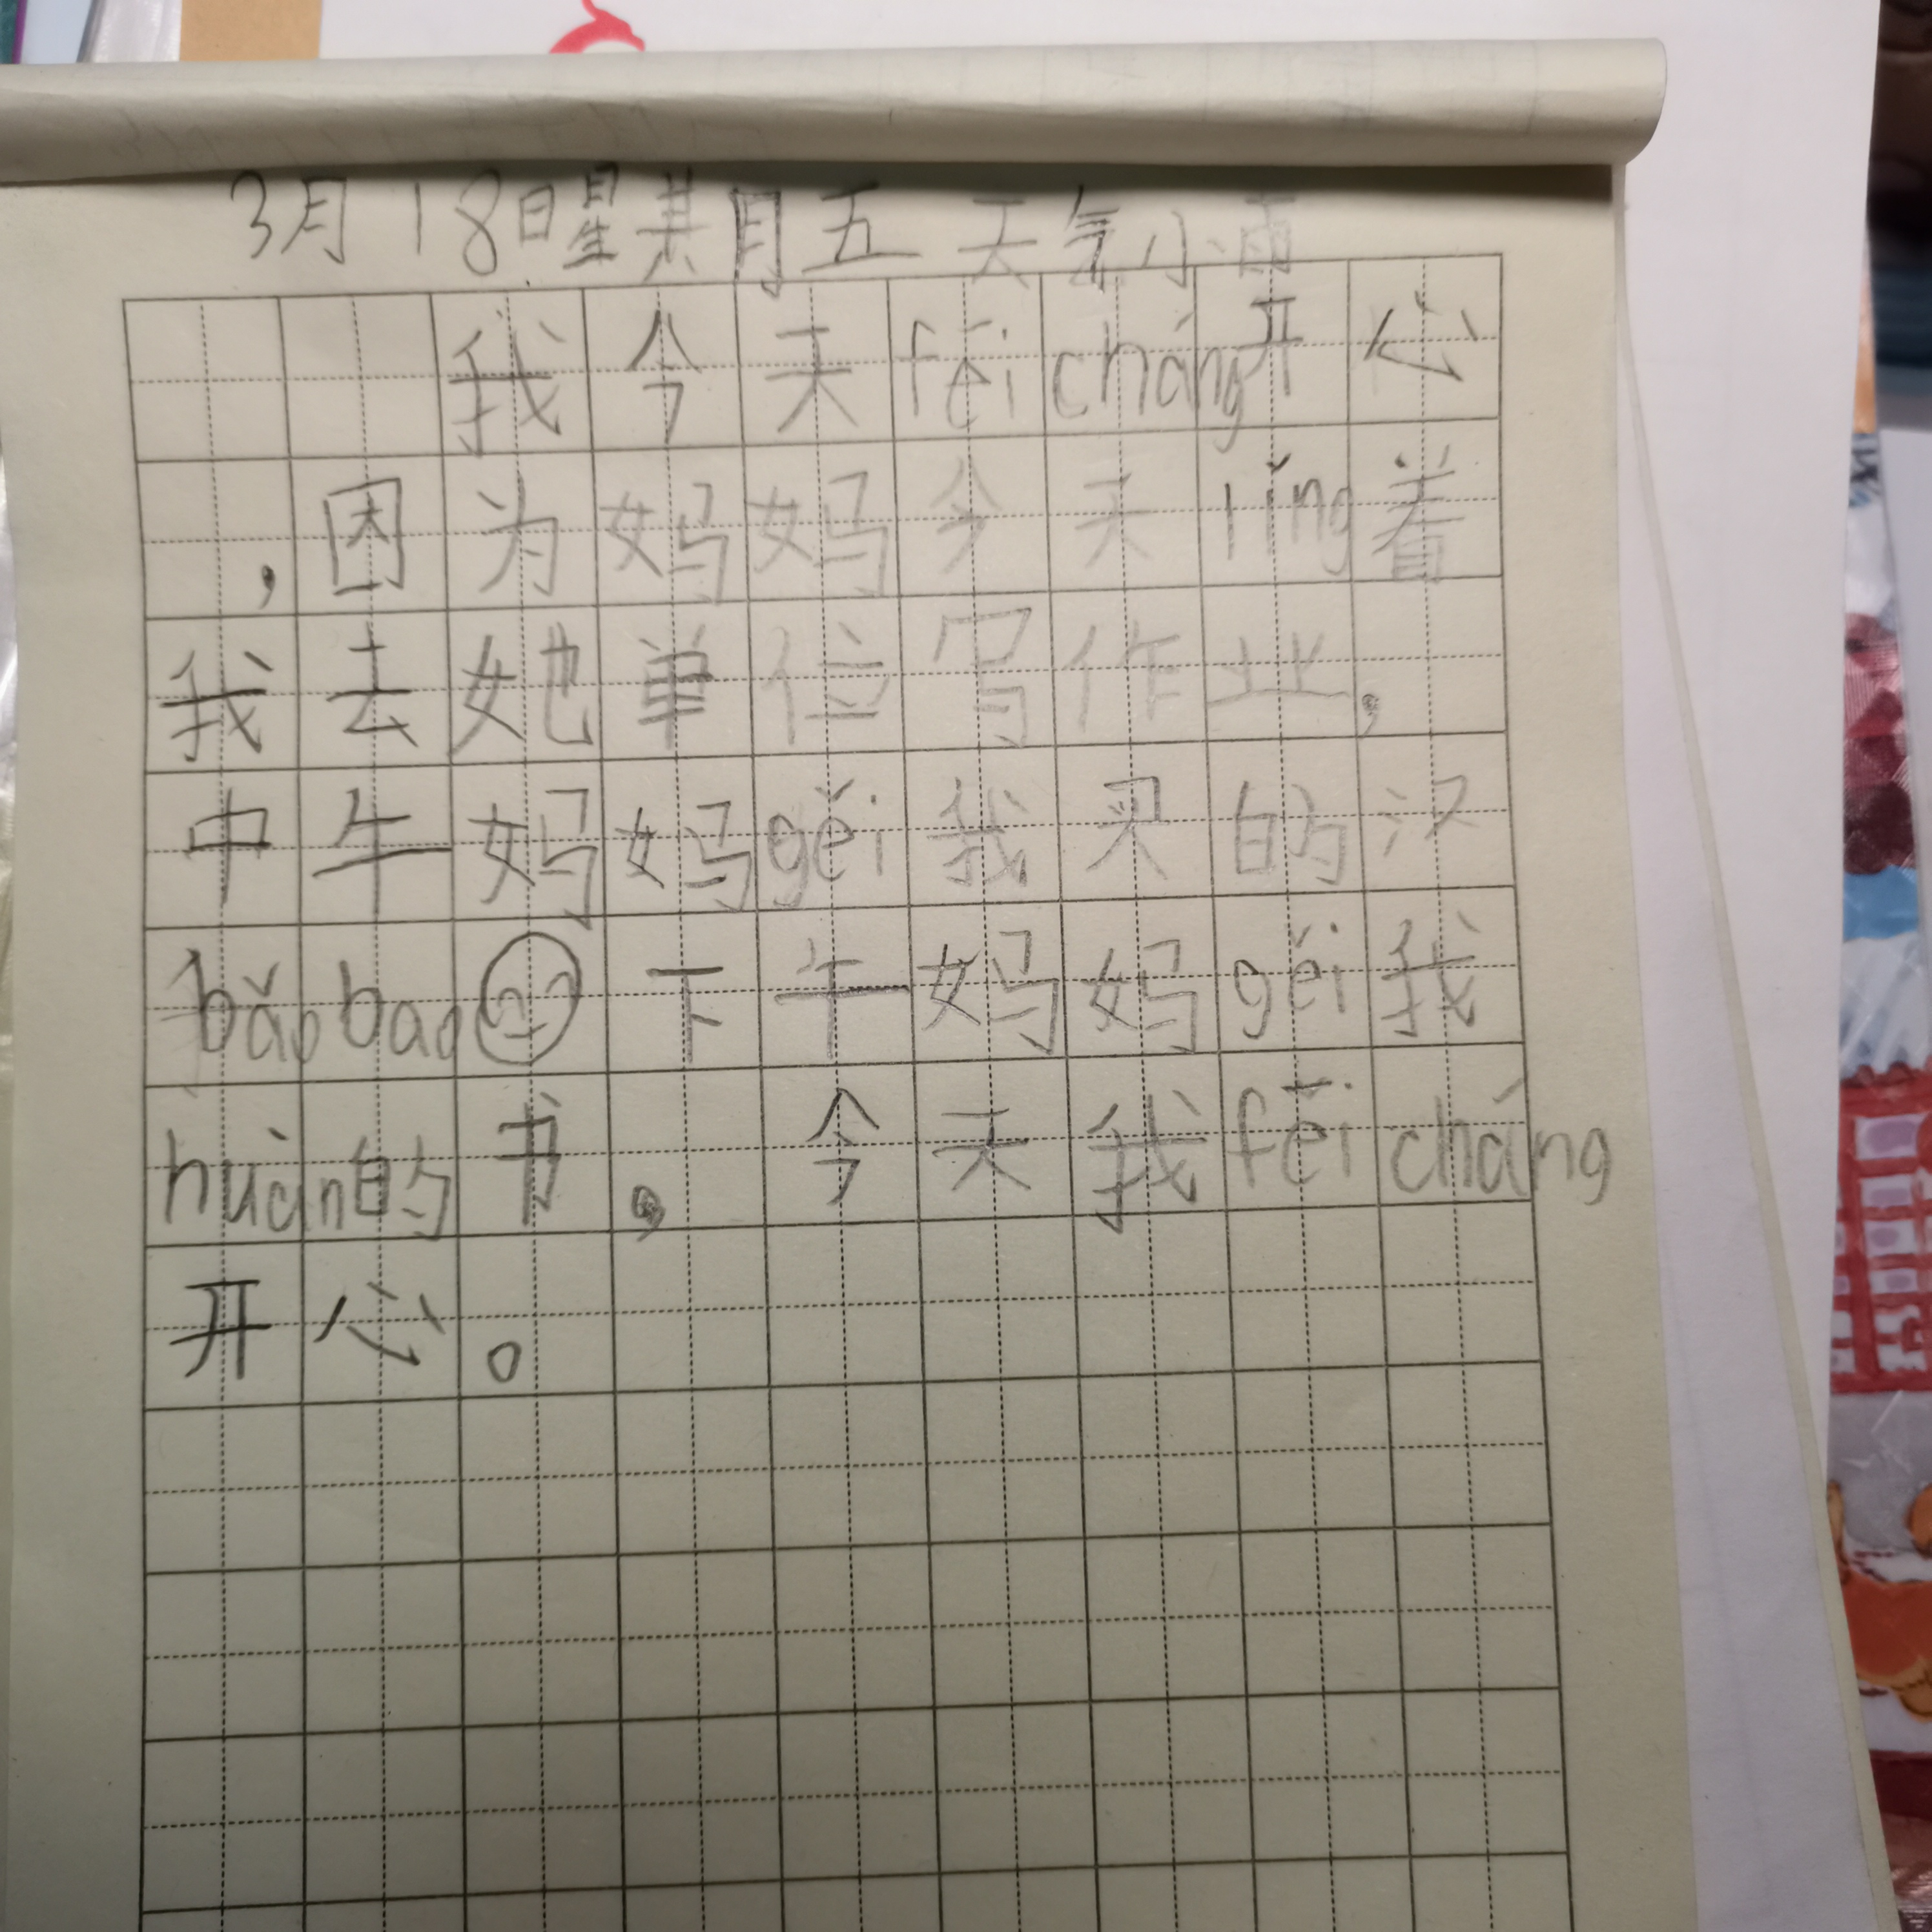 3月18日星期五 天气小雨
我今天fēicháng开心
，因为妈妈今天lǐng着
我去她单位写作业，
中午妈妈gěi我买的汉
bǎobao下午妈妈gěi我
huàn的书。今天我fēicháng
开心。